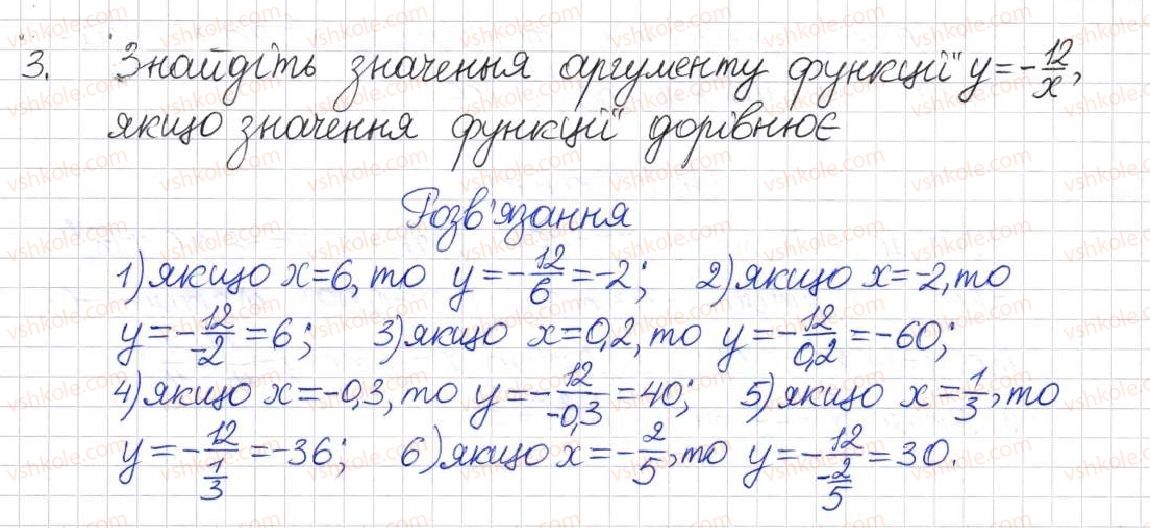 3. Знайдіть значення аргументу функції y = -12/x,
якщо значення функції дорівнює
Розв'язання
1) якщо x = 6, то y = -12/6 = -2; 2) якщо x = -2, то
y = -12/-2 = 6; 3) якщо x = 0,2, то y = -12/0,2 = -60;
4) якщо x = -0,3, то y = -12/-0,3 = 40; 5) якщо x = 1/3, то
y = -12/(1/3) = -36; 6) якщо x = -2/5, то y = -12/(-2/5) = 30.